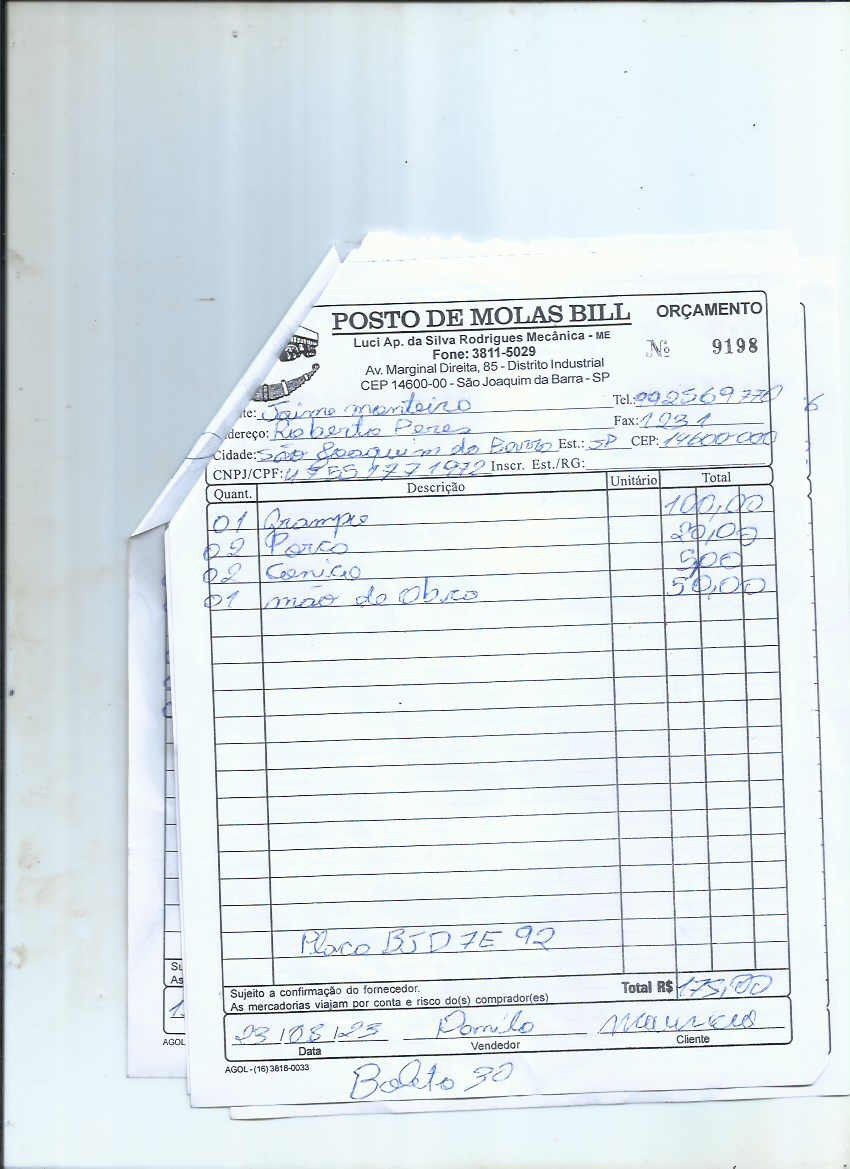 POSTO DE MOLAS BILL ORÇAMENTO
Luci Ap. da Silva Rodrigues Mecânica - ME
Fone: 3811-5029 Nº 9198
Av. Marginal Direita, 85 - Distrito Industrial
CEP 14600-00 - São Joaquim da Barra - SP
te: Jaime monteiro Tel.: 992569770
dereço: Roberto Peres Fax: 1231
Cidade: São Joaquim da Barra Est.: SP CEP: 14600-000
CNPJ/CPF: Inscr. Est./RG:
Quant. Descrição Unitário Total
01 Grampo 100,00
02 Porca 20,00
02 500
01 mão de Obra 50,00
Placa BJD7E 92
Sujeito a confirmação do fornecedor. Total R$ 175,00
As mercadorias viajam por conta e risco do(s) comprador(es)
23/08/23 Mauricio
Data Vendedor Cliente
AGOL - (16) 3818-0033
Boleto 30
Su
As
AGOL